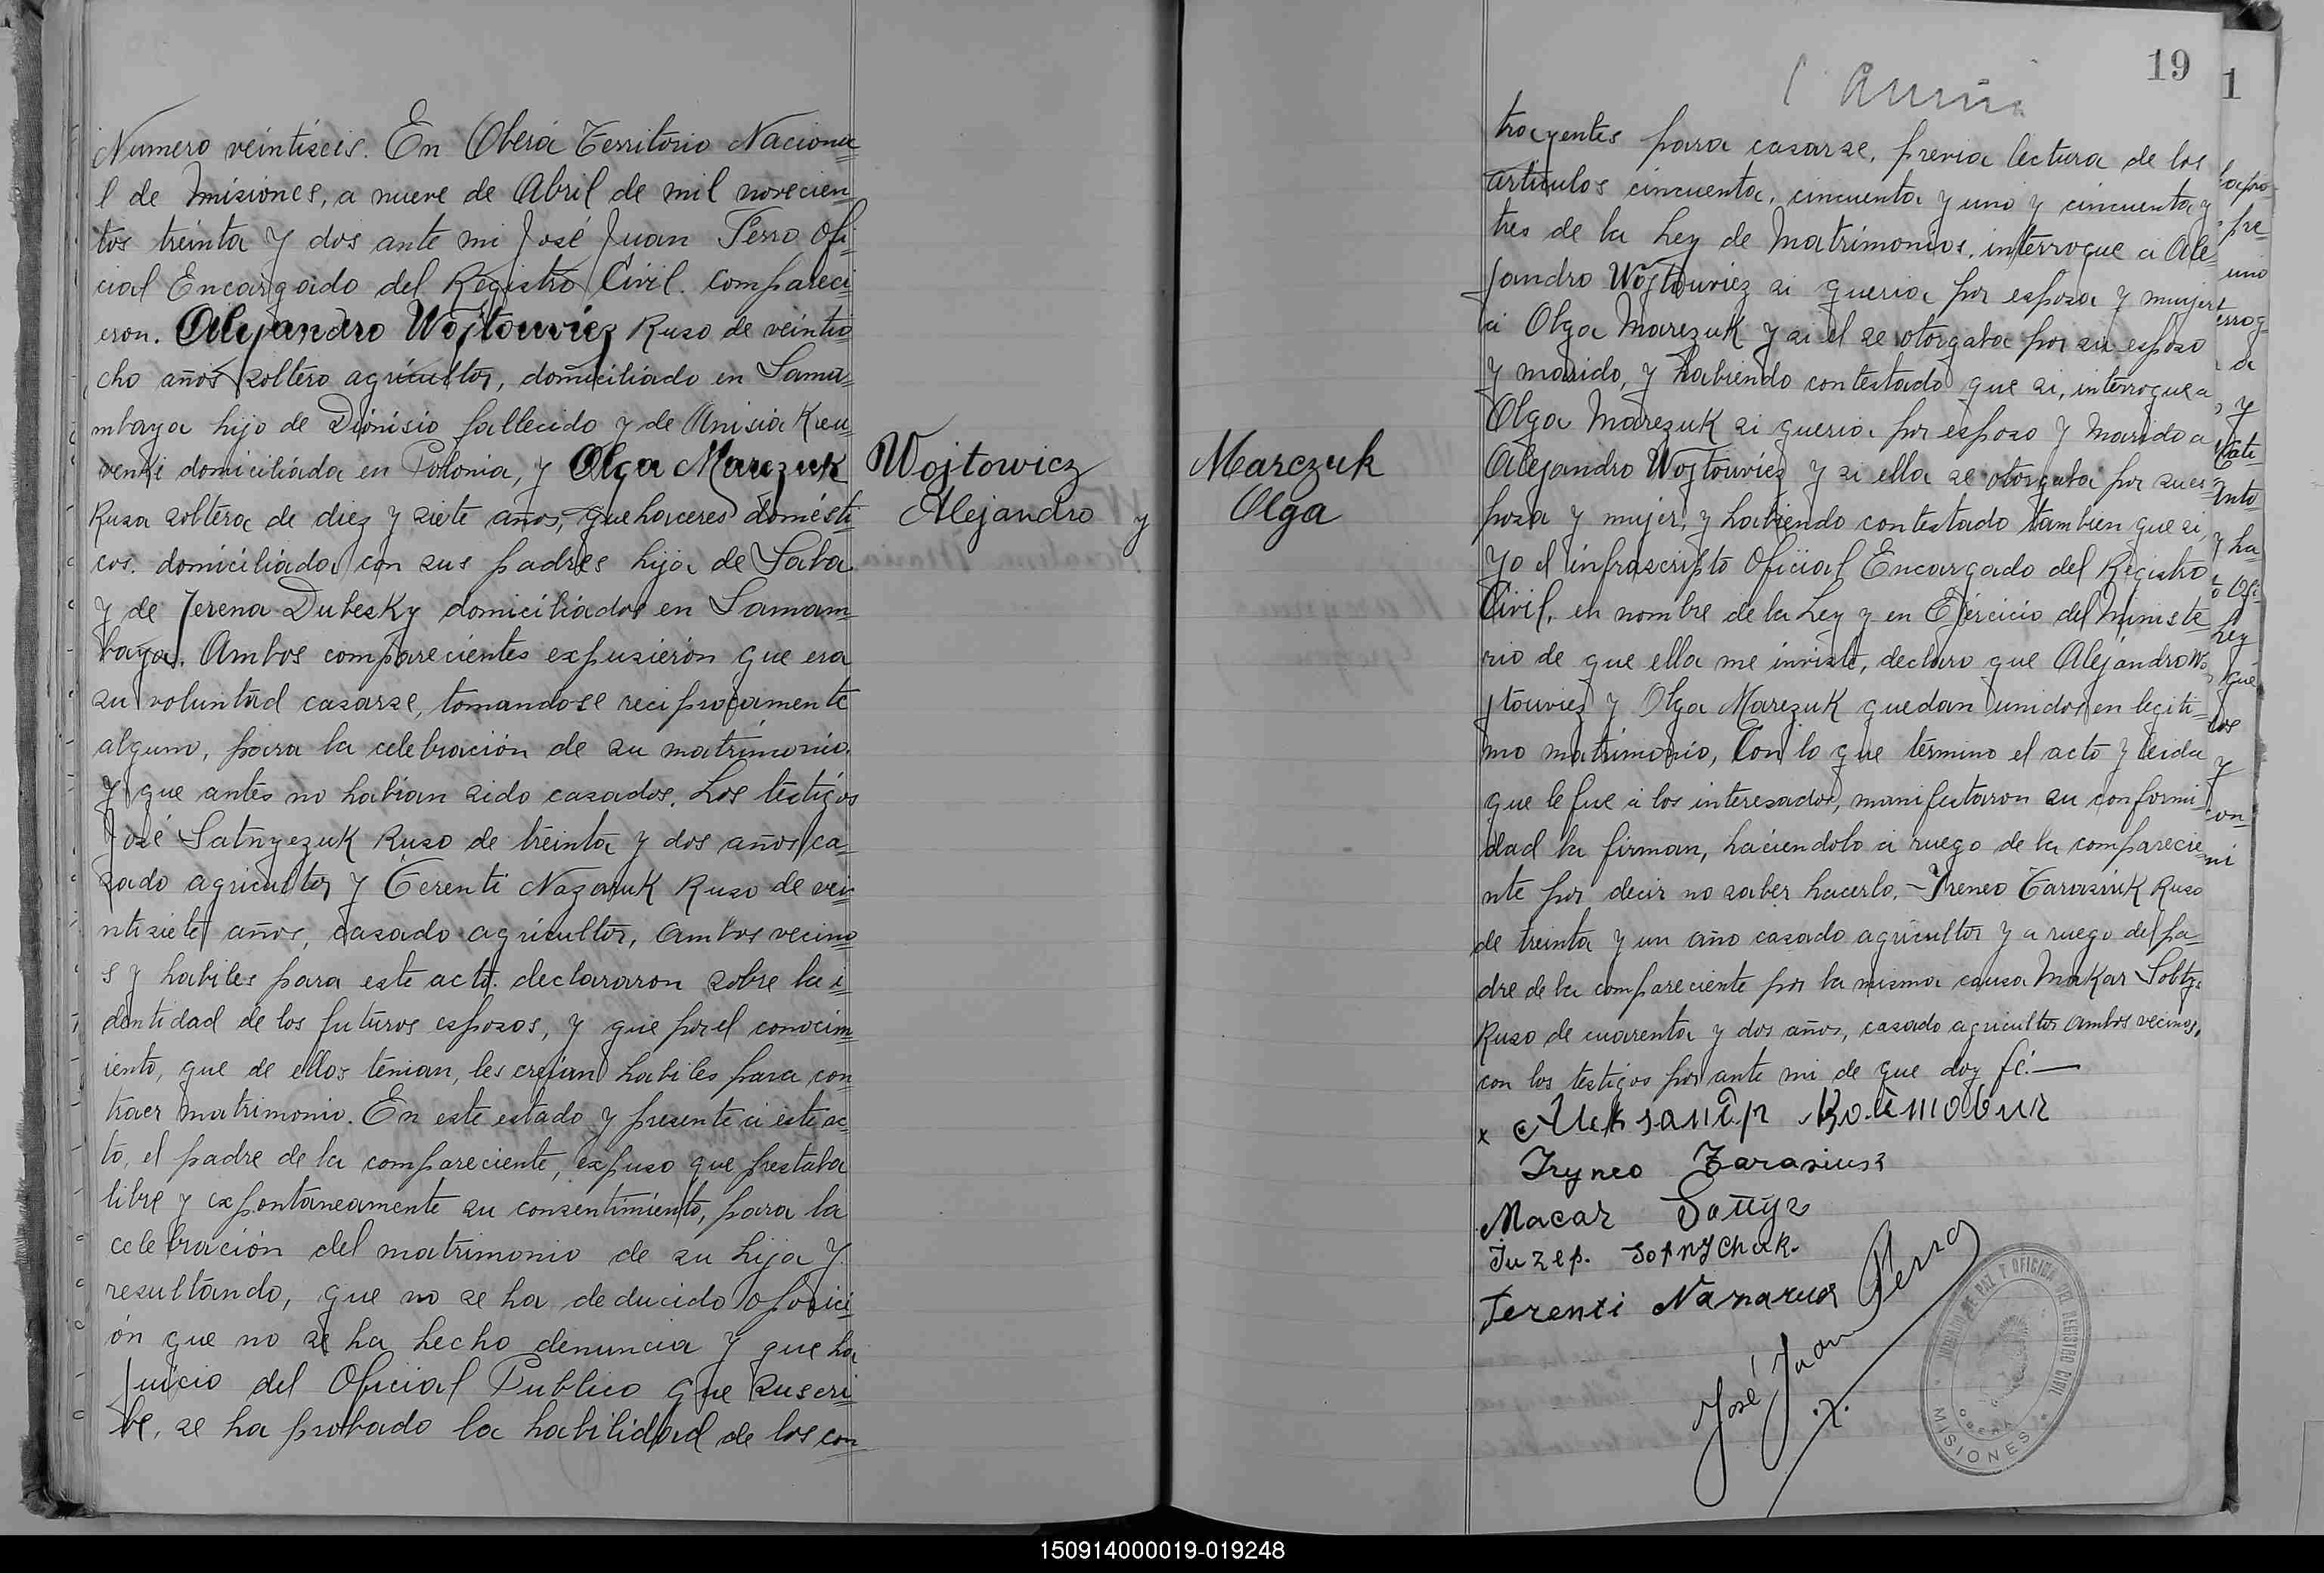 Numero veintiseis. En Oberá Territorio Naciona=
l de Misiones, a nueve de Abril de mil novecien=
tos treinta y dos ante mi José Juan Ferro Ofi=
cial Encargado del Registro Civil. compareci=
eron. Alejandro Wojtouviez Ruso de veintio=
cho años soltero agricultor, domiciliado en Sama=
mbaya hijo de Dionisio fallecido y de Anisia
domiciliada en Polonia, y Olga Marezuk
Rusa soltera de diez y siete años, quehaceres domésti=
cos. domiciliada con sus padres hija de Saba
y de Jerena Dubesky domiciliados en Samam=
baya. Ambos comparecientes expusierón que era
su voluntad casarse, tomandose reciprocamente
alguno, para la celebración de su matrimonio.
y que antes no habian sido casados. Los testigos
José Satnyezuk Ruso de treinta y dos años ca=
sado agricultor y Terenti Nazaruk Ruso de vei=
ntisiete años, casado agricultor, ambos vecino=
s y habiles para este acto. declararon sobre la i=
dentidad de los futuros esposos, y que por el conocim=
iento, que de ellos tenian, les creian habiles para con=
traer matrimonio. En este estado y presente a este ac=
to, el padre de la compareciente, expuso que prestaba
libre y expontáneamente su consentimiento, para la
celebración del matrimonio de su hija y
resultando, que no se ha deducido oposici=
ón que no se ha hecho denuncia y que ha
juicio del Oficial Publico que suscri=
be, se ha probado la habilidad de los con=
Wojtowicz
Alejandro y
Marczuk
Olga
19
trayentes para casarse, previa lectura de los
articulos cincuenta, cincuenta y uno y cincuenta y
tres de la Ley de Matrimonios, interrogue a Ale=
jandro Wojtouviez si queria por esposa y mujer
a Olga Marezuk y si el se otorgaba por su esposo
y marido, y habiendo contestado que si, interrogue a
Olga Marezuk si queria por esposo y Marido a
Alejandro Wojtouviez y si ella se otorgaba por su es=
posa y mujer, y habiendo contestado tambien que si,
yo el infrascripto Oficial Encargado del Registro
Civil, en nombre de la Ley y en Ejercicio del Ministe=
rio de que ella me inviste, declaro que Alejandro Wo=
jtouviez y Olga Marezuk quedan unidos en legiti=
mo matrimonio, Con lo que término el acto y leida
que le fue a los interesados, manifestaron su conformi=
dad la firman, haciendolo a ruego de la comparecie=
nte por decir no saber hacerlo. - Yreneo Tarasiuk Ruso
de treinta y un año casado agricultor y a ruego del pa=
dre de la compareciente por la misma causa Makar Soltys
Ruso de cuarenta y dos años, casado agricultor ambos vecinos,
con los testigos por ante mi de que doy fé.—
Iryneo Tarasiuk
Macar
Juzep. Sotnychuk.
Terenti Nazaruk
José Juan Ferro
JUZGADO DE PAZ Y OFICINA DEL REGISTRO CIVIL
OBERÁ
MISIONES
1
150914000019-019248